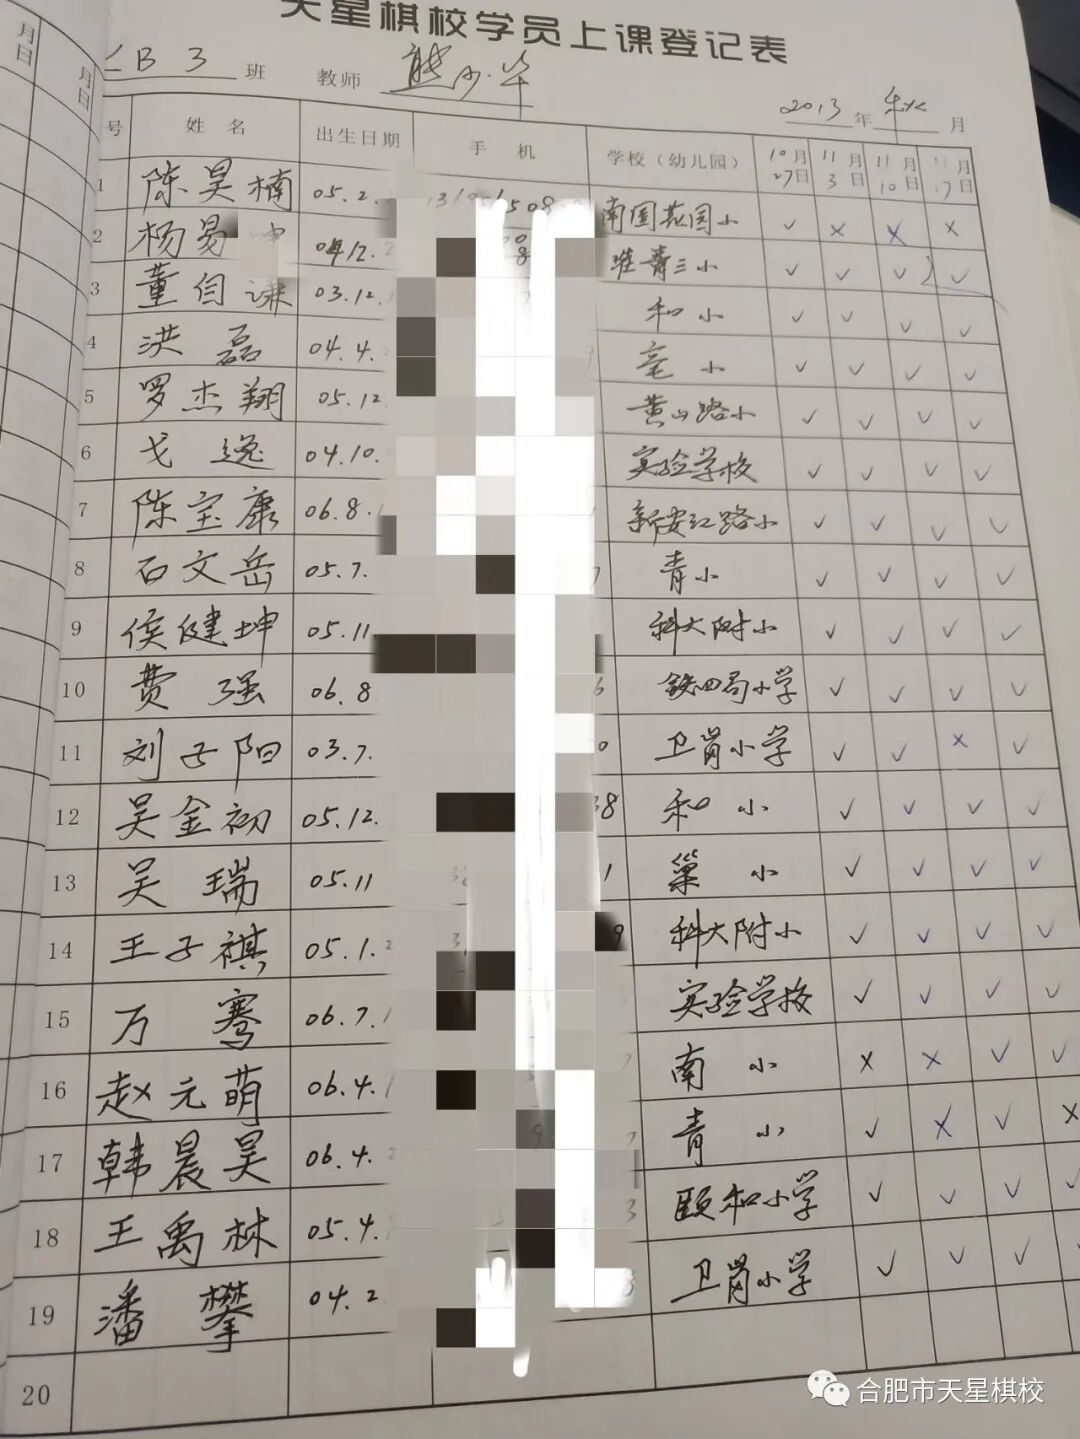 天星棋校学员上课登记表
B 3 班 教师
2013 年 秋 月
月 日
月 日
号 姓 名 出生日期 手 机 学校（幼儿园） 10月27日 11月3日 11月10日 月17日
1 陈昊楠 05.2. 南国花园小 ✓ × × ×
2 杨易 04.12. 淮青三小 ✓ ✓ ✓ ✓
3 董自谦 03.12. 和小 ✓ ✓ ✓ ✓
4 洪磊 04.4. 亳小 ✓ ✓ ✓ ✓
5 罗杰翔 05.12 黄山路小 ✓ ✓ ✓ ✓
6 戈逸 04.10. 实验学校 ✓ ✓ ✓ ✓
7 陈宝康 06.8. 新安江路小 ✓ ✓ ✓ ✓
8 石文岳 05.7. 青小 ✓ ✓ ✓ ✓
9 侯健坤 05.11 科大附小 ✓ ✓ ✓ ✓
10 费强 06.8 铁四局小学 ✓ ✓ ✓ ✓
11 刘子阳 03.7. 卫岗小学 ✓ ✓ × ✓
12 吴金初 05.12. 38 和小 ✓ ✓ ✓ ✓
13 吴瑞 05.11 1 巢小 ✓ ✓ ✓ ✓
14 王子祺 05.1. 9 科大附小 ✓ ✓ ✓ ✓
15 万骞 06.7.1 实验学校 ✓ ✓ ✓ ✓
16 赵元萌 06.4.1 南小 × × ✓ ✓
17 韩晨昊 06.4. 青小 ✓ × ✓ ×
18 王禹林 05.4. 3 颐和小学 ✓ ✓ ✓ ✓
19 潘攀 04.2 卫岗小学 ✓ ✓ ✓
20
合肥市天星棋校